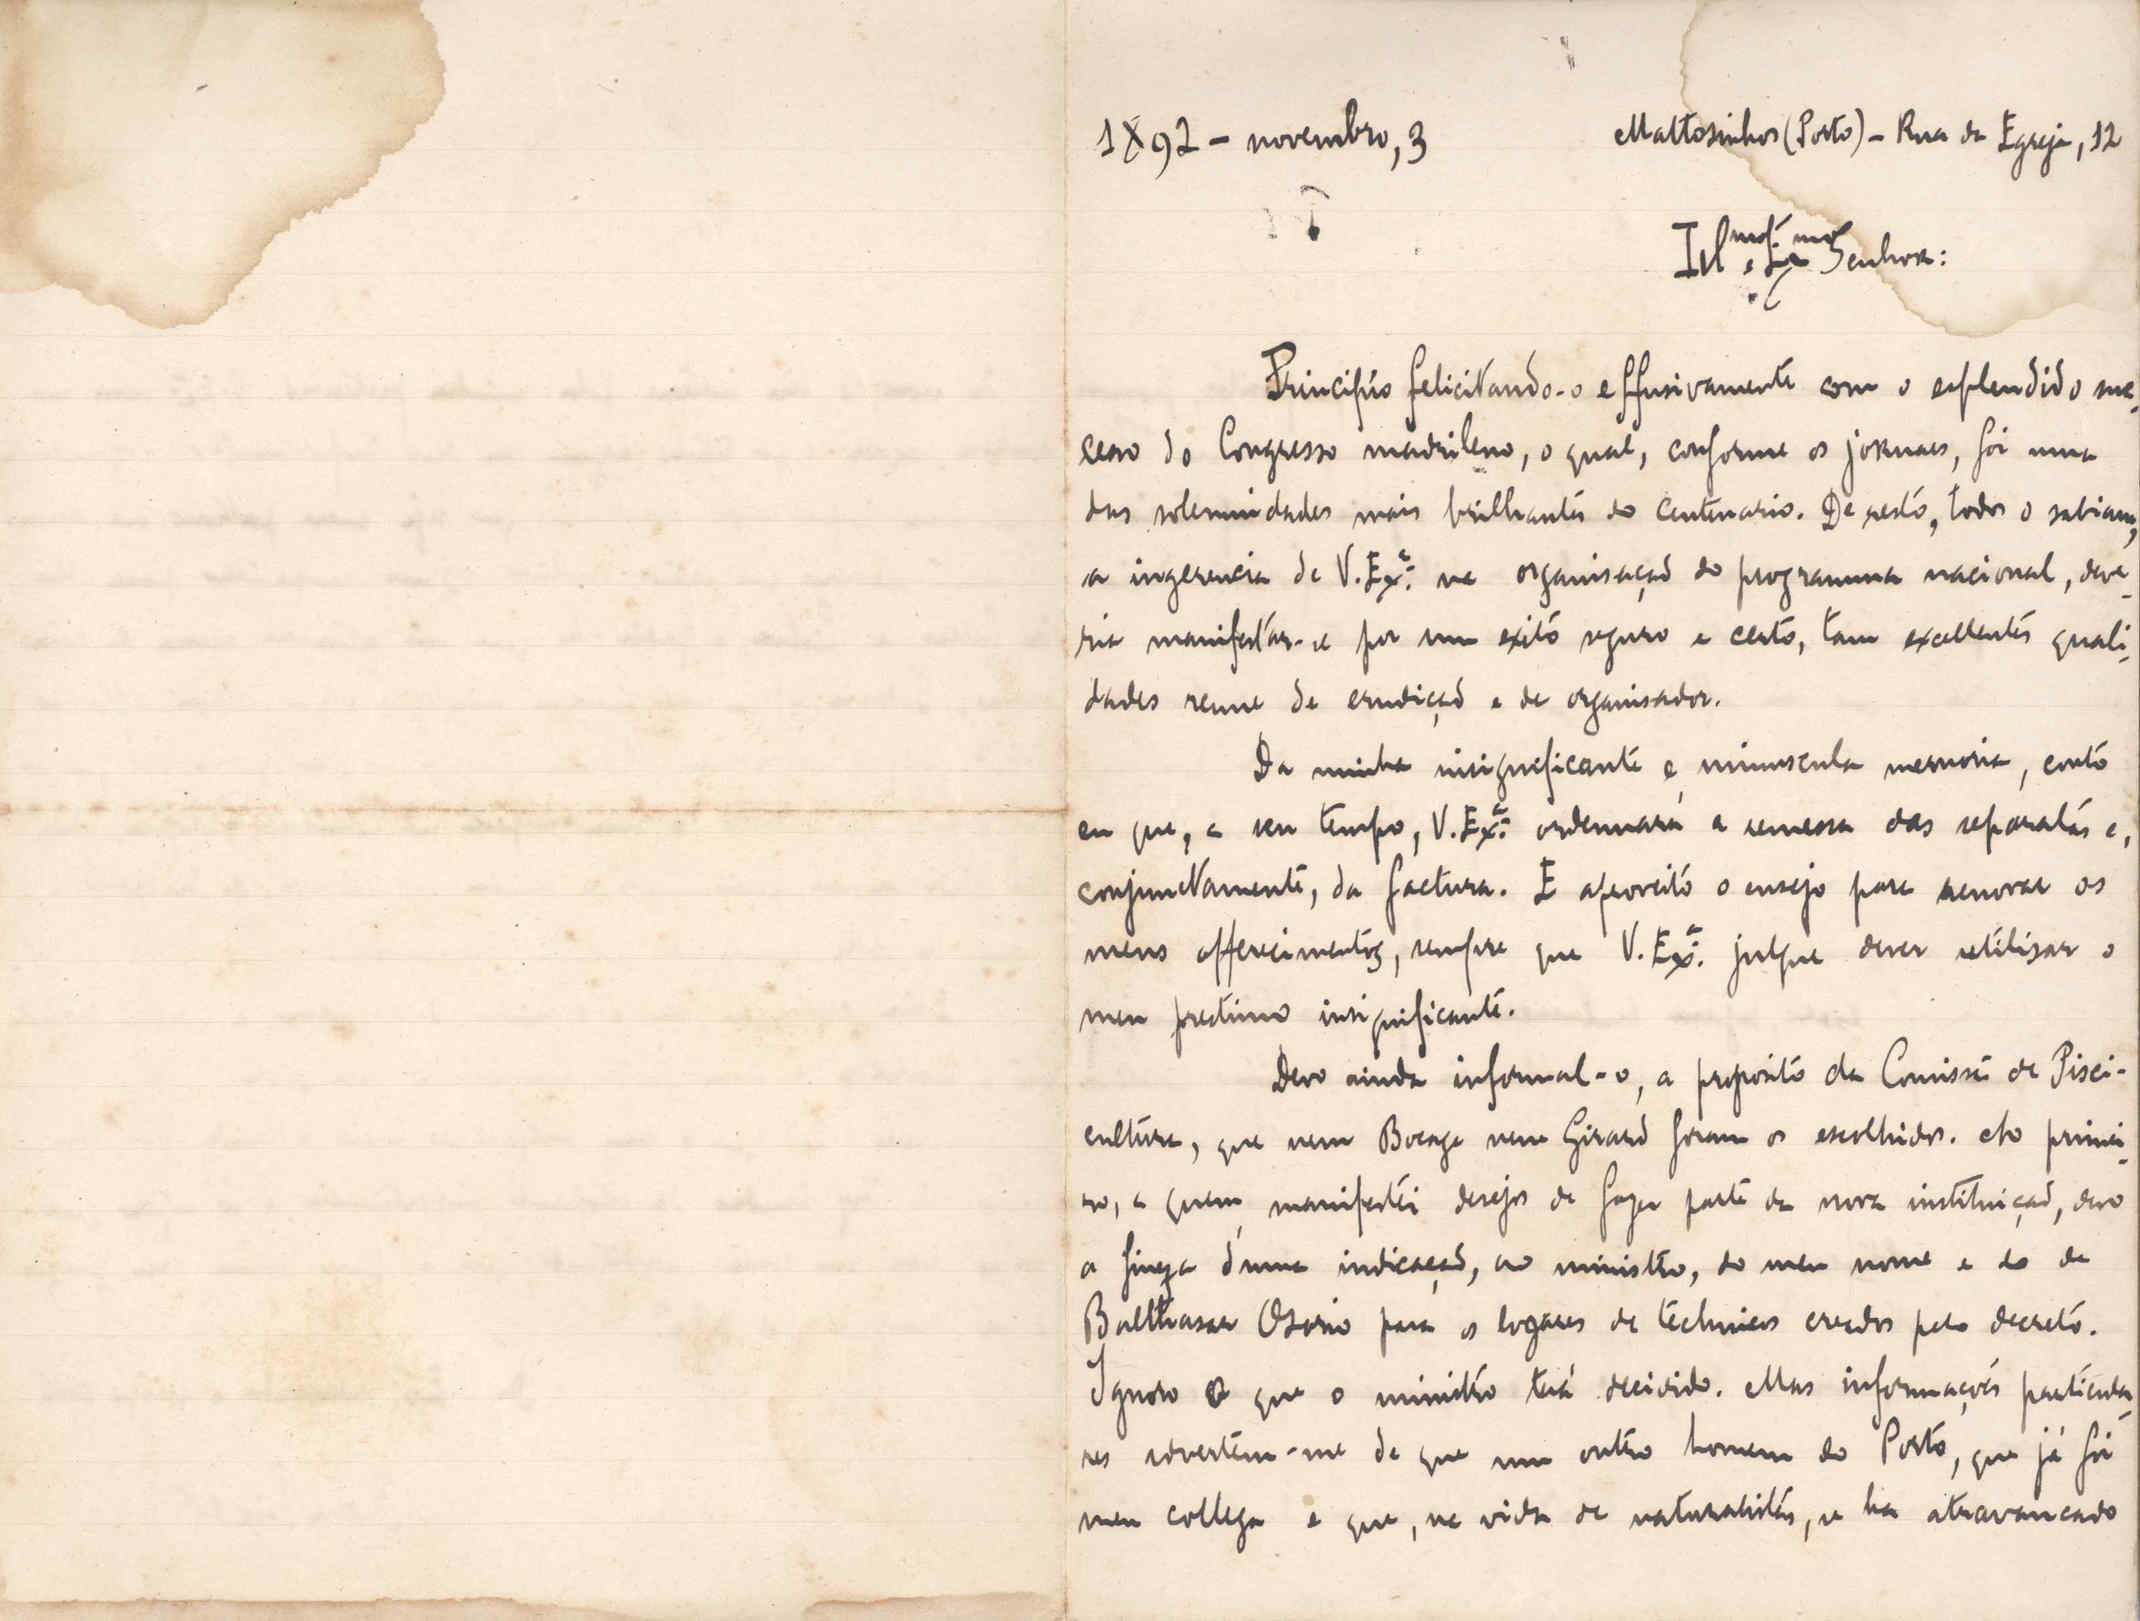 1892 - novembro, 3
Mattosinhos (Porto) - Rua da Egreja, 12
Ill.mo e Ex.mo Senhor:
Principio felicitando-o effusivamente com o esplendido suc-
cesso do Congresso madrileno, o qual, conforme os jornaes, foi uma
das solemnidades mais brilhantes do Centenario. De resto, todos o sabiam,
a ingerencia de V. Ex.ª na organisação do programma nacional, deve-
ria manifestar-se por um exito seguro e certo, tam excellentes quali-
dades reune de erudição e de organisador.
Da minha insignificante e minuscula memoria, conto
eu que, a seu tempo, V. Ex.ª ordennará a remessa das separatas e,
conjunctamente, da factura. E aproveito o ensejo para renovar os
meus offerecimentos, sempre que V. Ex.ª julgue dever utilisar o
meu prestimo insignificante.
Devo ainda informal-o, a proposito da Comissão de Pisci-
cultura, que nem Bocage nem Girard foram os escolhidos. Ao primei-
ro, a quem manifestei desejos de fazer parte da nova instituição, devo
a fineza d'uma indicação, ao ministro, do meu nome e do de
Balthasar Osorio para os logares de technicos creados pelo decreto.
Ignoro o que o ministro terá decidido. Mas informações particula-
res advertem-me de que um outro homem do Porto, que já foi
meu collega e que, na vida de naturalista, se ha atravancado